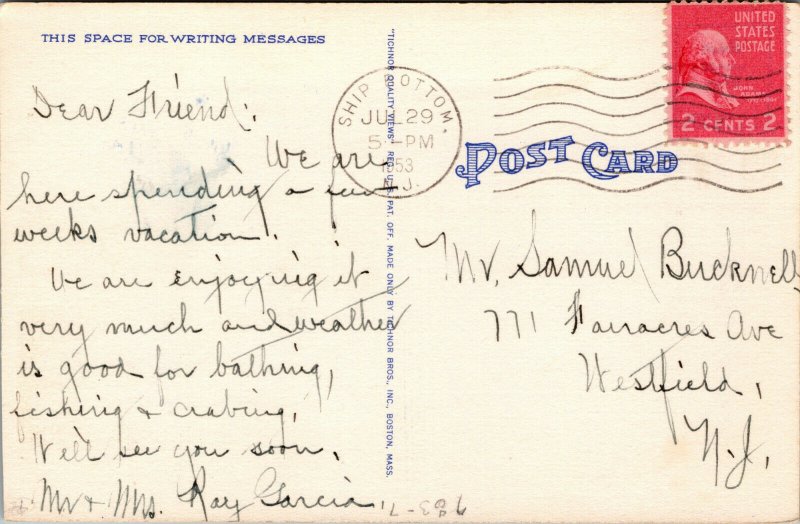 THIS SPACE FOR WRITING MESSAGES
Dear Friend:
We are
here spending a few
weeks vacation.
We are enjoying it
very much and weather
is good for bathing,
fishing & crabing,
We'll see you soon,
Mr & Mrs. Ray Garcia,
"TICHNOR QUALITY VIEWS" REG. U. S. PAT. OFF. MADE ONLY BY TICHNOR BROS., INC., BOSTON, MASS.
SHIP BOTTOM,
JUL 29
5 - PM
1953
N.J.
UNITED
STATES
POSTAGE
JOHN
ADAMS
2 CENTS 2
POST CARD
Mr. Samuel Bucknell
771 Fairacres Ave
Westfield,
N.J.,